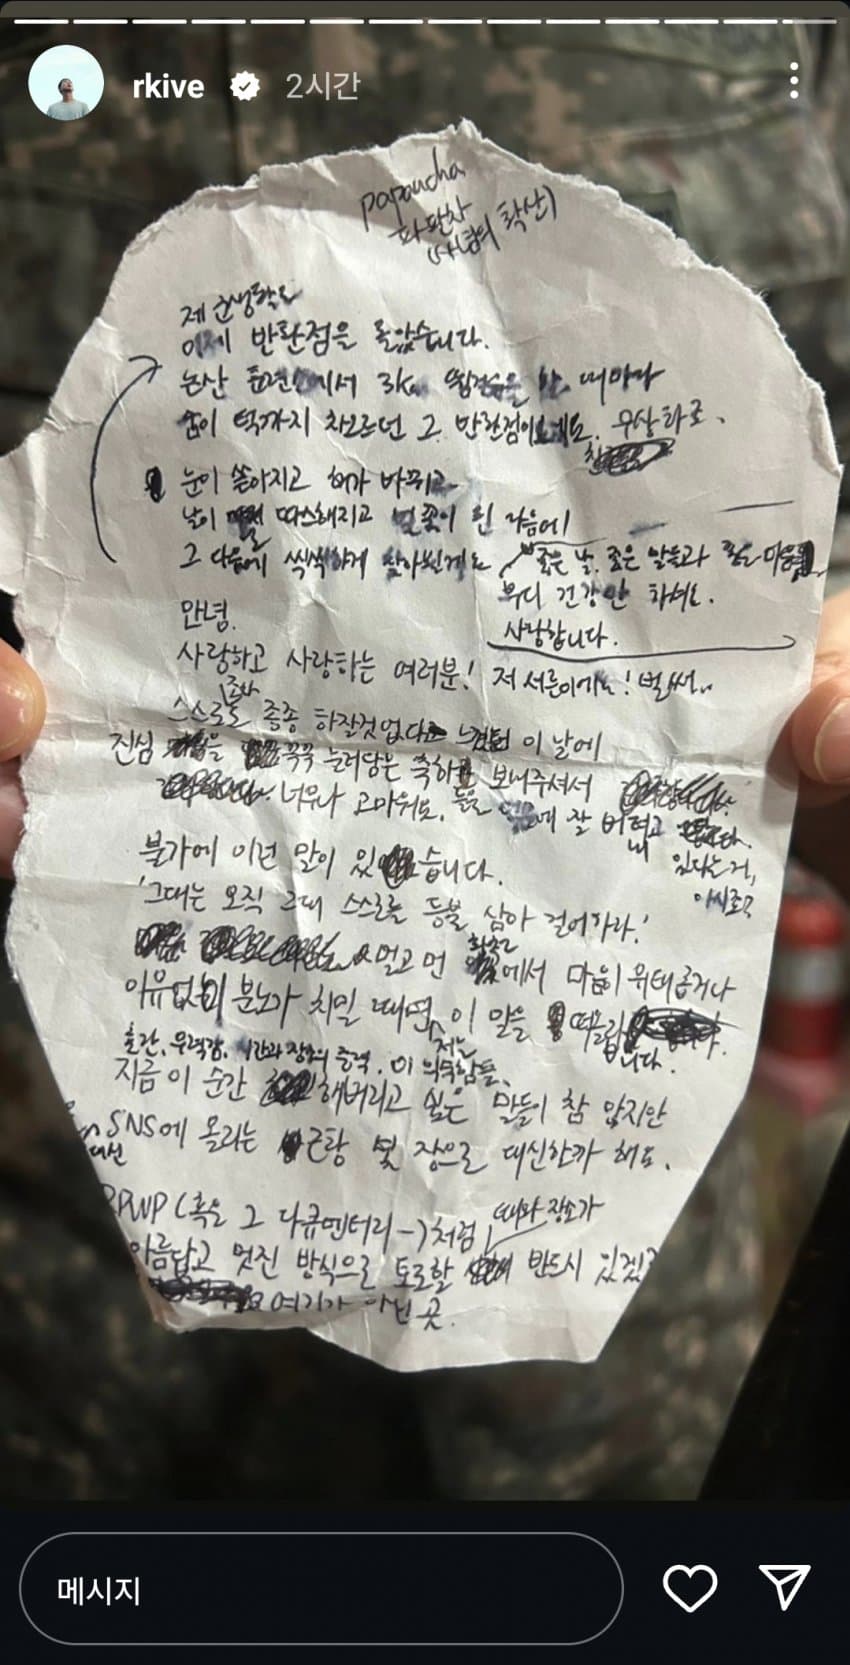 rkive 2시간
papancha
파판차
(사념의 확산)
제 군생활도
이제 반환점을 돌았습니다.
논산 훈련소에서 3km 뜀걸음을 할 때마다
숨이 턱까지 차오르던 그 반환점이
눈이 쏟아지고 해가 바뀌고
날이 따스해지고 봄꽃이 핀 다음에
그 다음에 씩씩하게 찾아뵐게요
좋은 날, 좋은 말들과 좋은 마음
부디 건강만 하셔요.
사랑합니다.
안녕.
사랑하고 사랑하는 여러분! 저 서른이에요! 벌써..
스스로도 종종 하잘것없다 느꼈던 이 날에
진심 을 꾹꾹 눌러담은 축하 보내주셔서
너무나 고마워요. 잘 버티고
있다는 거,
아시죠
불가에 이런 말이 있습니다.
'그대는 오직 그대 스스로를 등불 삼아 걸어가라.'
멀고 먼 에서 마음이 위태롭거나
이유없이 분노가 치밀 때면, 이 말을 떠올립니다.
혼란, 무력감, 시간과 장소의 증력, 이 의뭉함들,
저는
지금 이 순간 해버리고 싶은 말들이 참 많지만
SNS에 올리는 근황 몇 장으로 대신할까 해요.
대신
RPWP (혹은 그 다큐멘터리-)처럼
때와 장소가
아름답고 멋진 방식으로 토로할 반드시 있겠
여기가 아닌 곳.
메시지